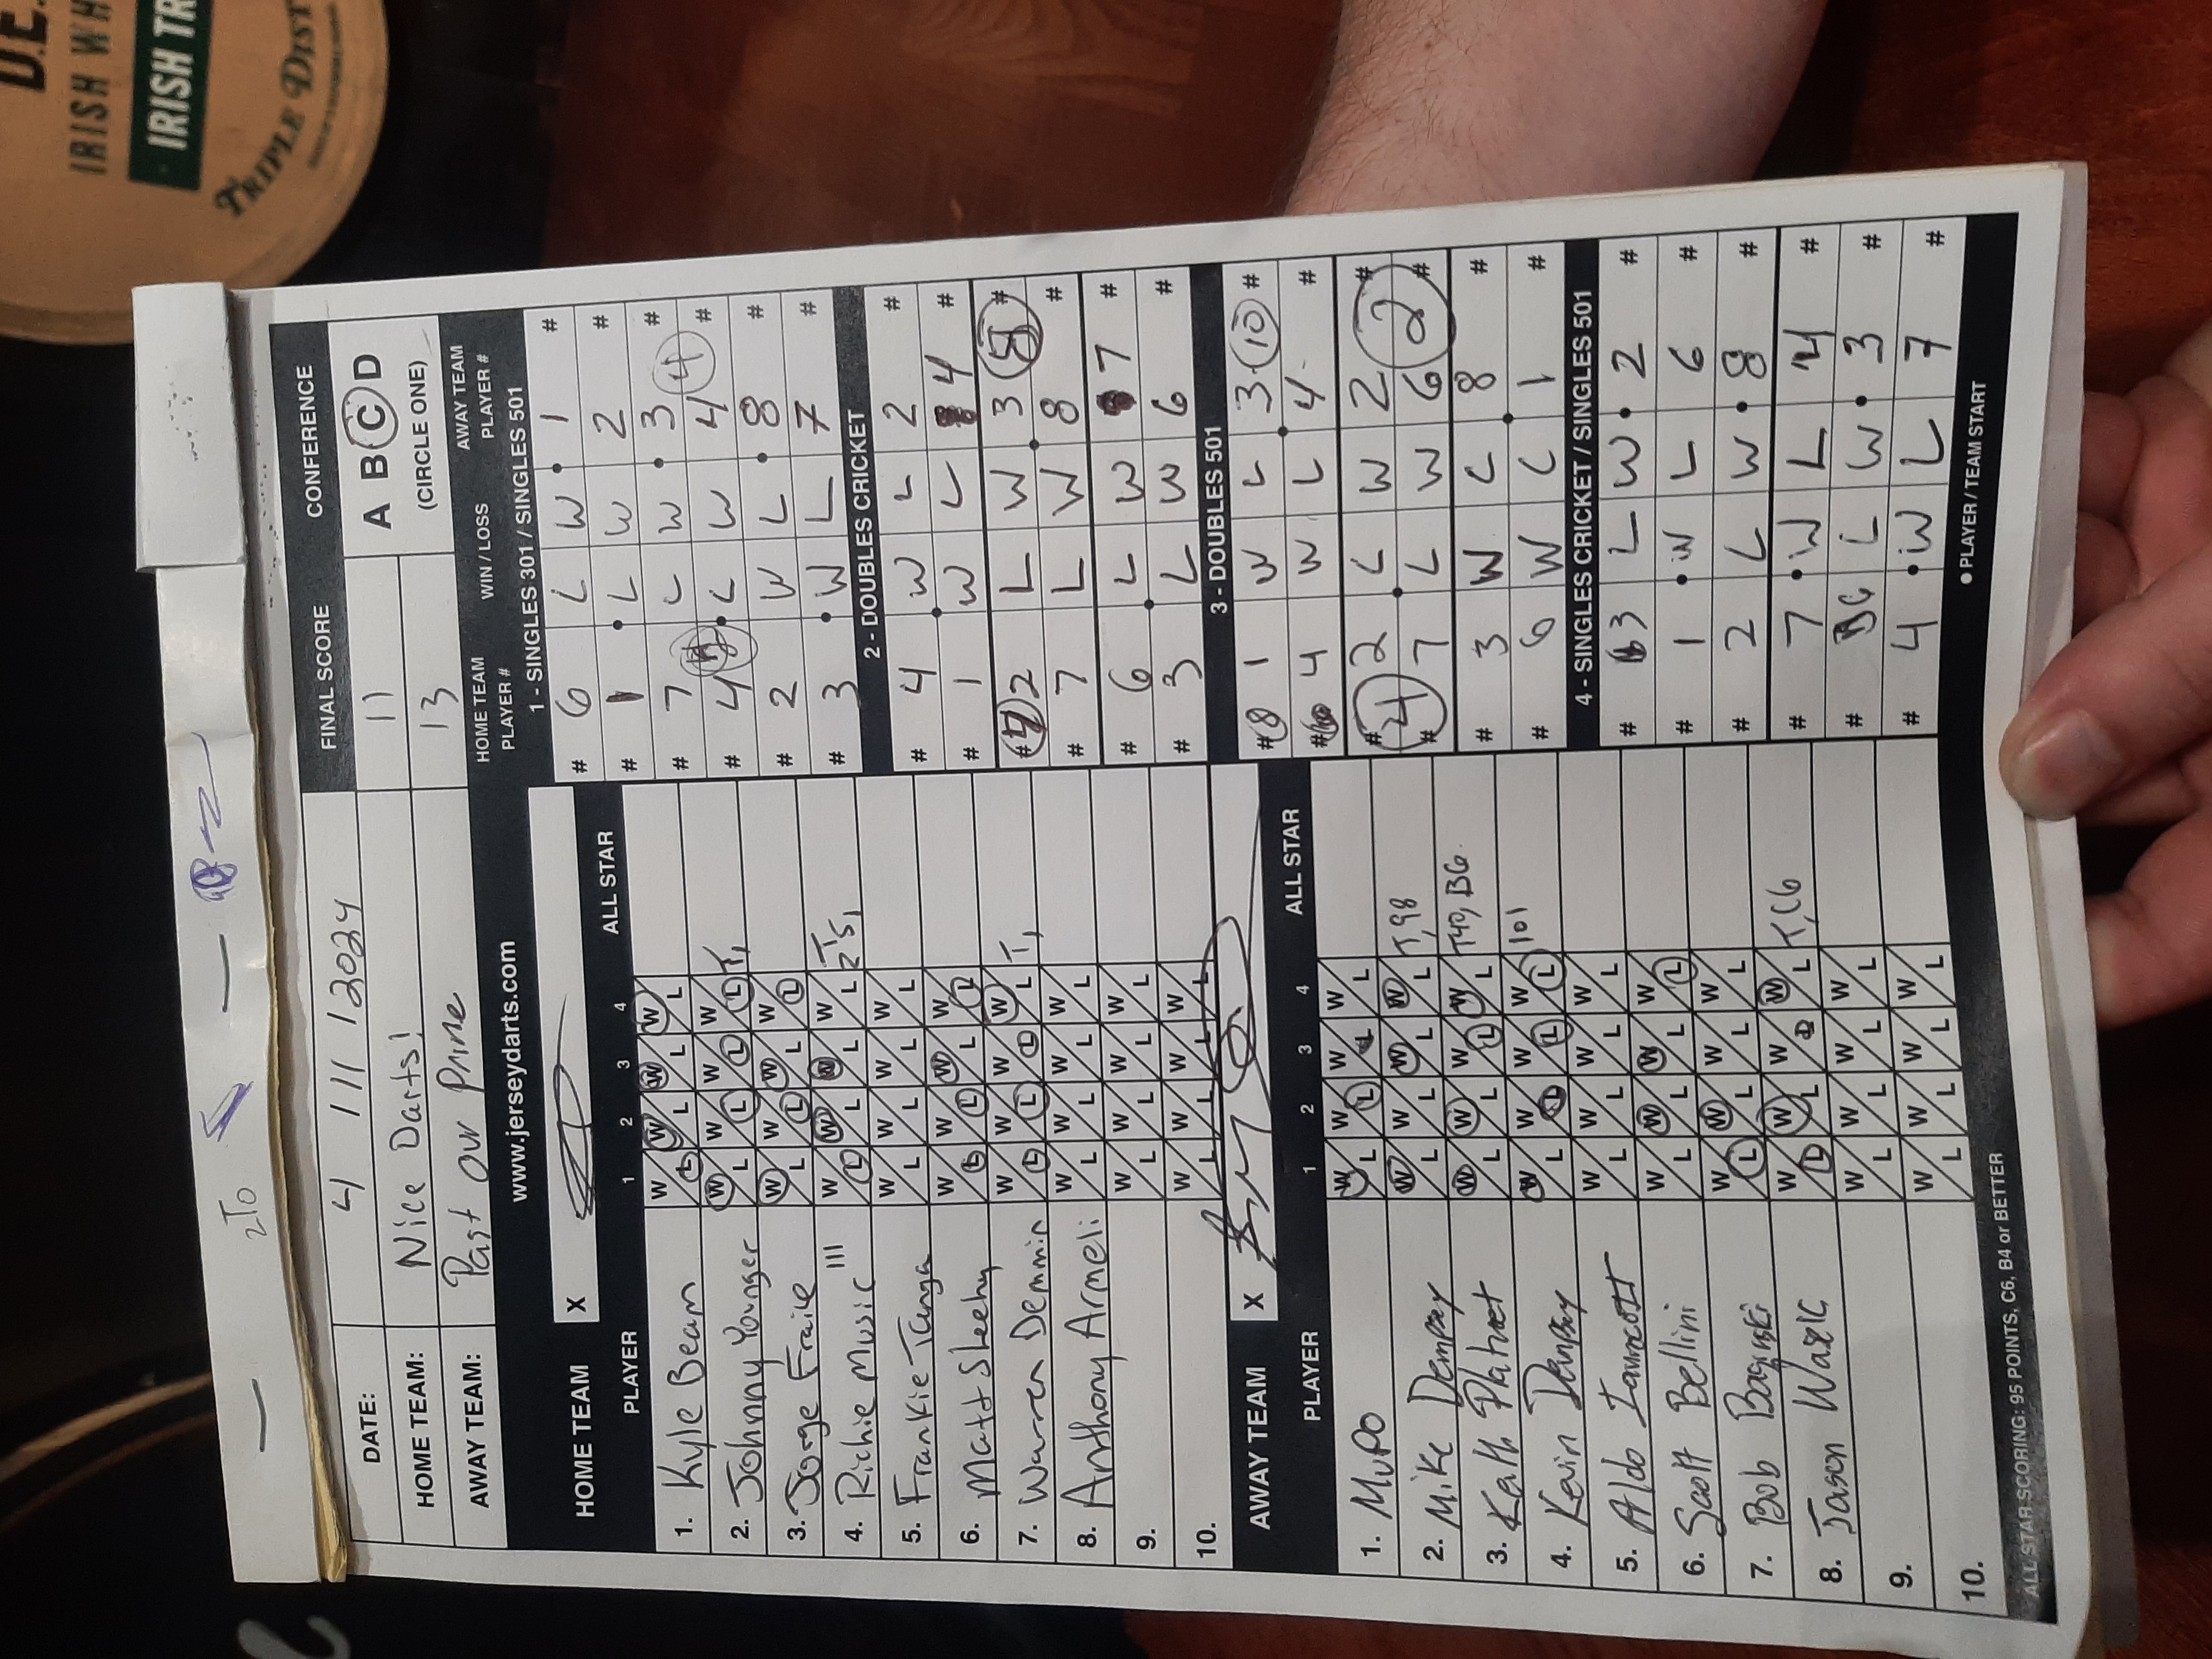 D.E.
IRISH WH
IRISH TR
TRIPLE DIST
2TO
DATE: 4 / 11 / 2024
HOME TEAM: Nice Darts!
AWAY TEAM: Past our Prime
FINAL SCORE
11
13
CONFERENCE
A B C D
(CIRCLE ONE)
www.jerseydarts.com
HOME TEAM X
PLAYER 1 2 3 4 ALL STAR
1. Kyle Bean W/L W/L W/L W/L
2. Johnny Younger W/L W/L W/L W/L T,
3. Jorge Fraile W/L W/L W/L W/L
4. Richie Music III W/L W/L W/L W/L 2T's,
5. Frankie Tanga W/L W/L W/L W/L
6. Matt Sheehy W/L W/L W/L W/L
7. Warren Demmin W/L W/L W/L W/L T,
8. Anthony Armeli W/L W/L W/L W/L
9. W/L W/L W/L W/L
10. W/L W/L W/L W/L
AWAY TEAM X
PLAYER 1 2 3 4 ALL STAR
1. MuPo W/L W/L W/L W/L
2. Mike Dempsey W/L W/L W/L W/L T,98
3. Keith W/L W/L W/L W/L T40, B6.
4. Kevin Dempsey W/L W/L W/L W/L 101
5. Aldo W/L W/L W/L W/L
6. Scott Bellini W/L W/L W/L W/L
7. Bob W/L W/L W/L W/L
8. Jason W/L W/L W/L W/L T,C6
9. W/L W/L W/L W/L
10. W/L W/L W/L W/L
HOME TEAM PLAYER # WIN / LOSS AWAY TEAM PLAYER #
1 - SINGLES 301 / SINGLES 501
# 6 L W 1 #
# 1 L W 2 #
# 7 L W 3 #
# 4 L W 4 4 #
# 2 W L 8 #
# 3 W L 7 #
2 - DOUBLES CRICKET
# 4 W L 2 #
# 1 W L 4 #
# 2 L W 3 #
# 7 L W 8 #
# 6 L W 7 #
# 3 L W 6 #
3 - DOUBLES 501
# 8 1 W L 3 10 #
# 4 W L 4 #
# 2 L W 2 #
4 2
# 7 L W 6 #
# 3 W L 8 #
# 6 W L 1 #
4 - SINGLES CRICKET / SINGLES 501
# 3 L W 2 #
# 1 W L 6 #
# 2 L W 8 #
# 7 W L 4 #
# 6 L W 3 #
# 4 W L 7 #
● PLAYER / TEAM START
ALL STAR SCORING: 95 POINTS, C6, B4 or BETTER